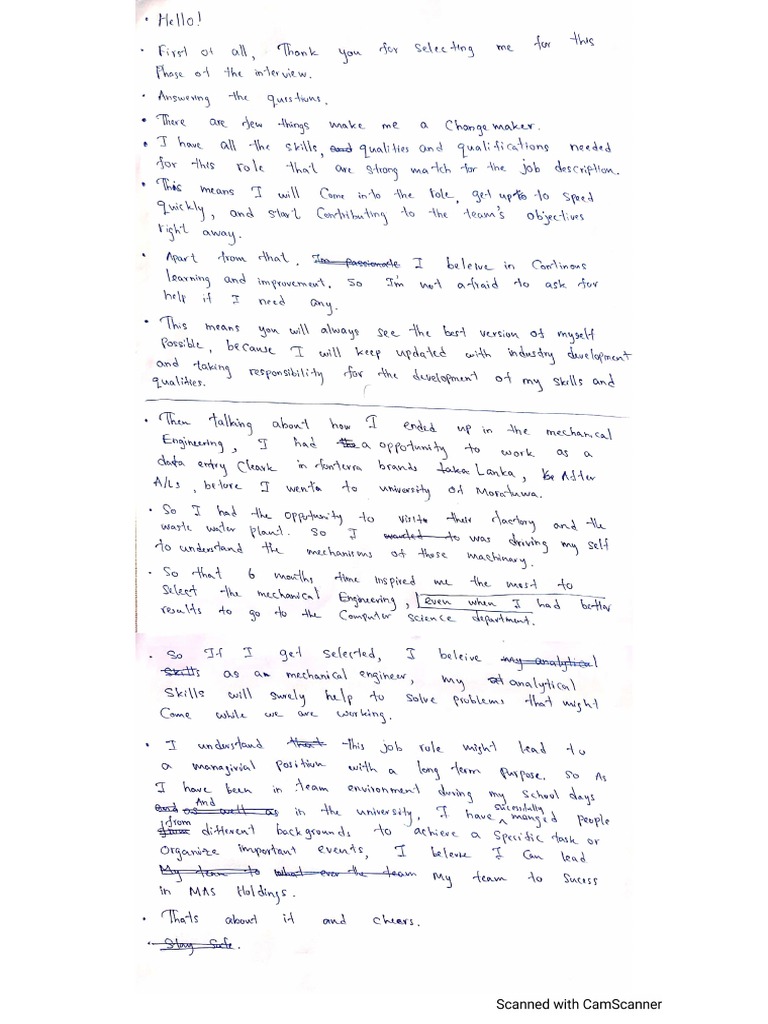 • Hello!
• First of all, Thank you for selecting me for this
Phase of the interview.
• Answering the questions.
• There are few things make me a Change maker.
• I have all the skills, and qualities and qualifications needed
for this role that are strong match for the job description.
• This means I will Come into the role, get upto to speed
quickly, and start Contributing to the team's objectives
right away.
• Apart from that, Im passionate I beleive in Continous
learning and improvement. So I'm not afraid to ask for
help if I need any.
• This means you will always see the best version of myself
Possible, because I will keep updated with industry development
and taking responsibility for the development of my skills and
qualities.
• Then talking about how I ended up in the mechanical
Engineering, I had the a oppotunity to work as a
data entry Cleark in fonterra brands Lanka, After
A/Ls, before I went to university of Moratuwa.
• So I had the oppotunity to visit their factory and the
waste water plant. So I wanted to was driving my self
to understand the mechanisms of those machinary.
• So that 6 months time inspired me the most to
Select the mechanical Engineering, even when I had better
results to go to the Computer science department.
• So If I get selected, I beleive my analytical
skills as an mechanical engineer, my analytical
Skills will surely help to solve problems that might
Come while we are working.
• I understand that this job role might lead to
a managirial position with a long term purpose. So As
I have been in team environment during my school days
and as well as And in the university, I have sucessfully manged people
from different backgrounds to achieve a Specific task or
Organize important events, I beleive I Can lead
My team to what ever the team My team to Sucess
in MAS Holdings.
• Thats about it and cheers.
• Stay Safe.
Scanned with CamScanner